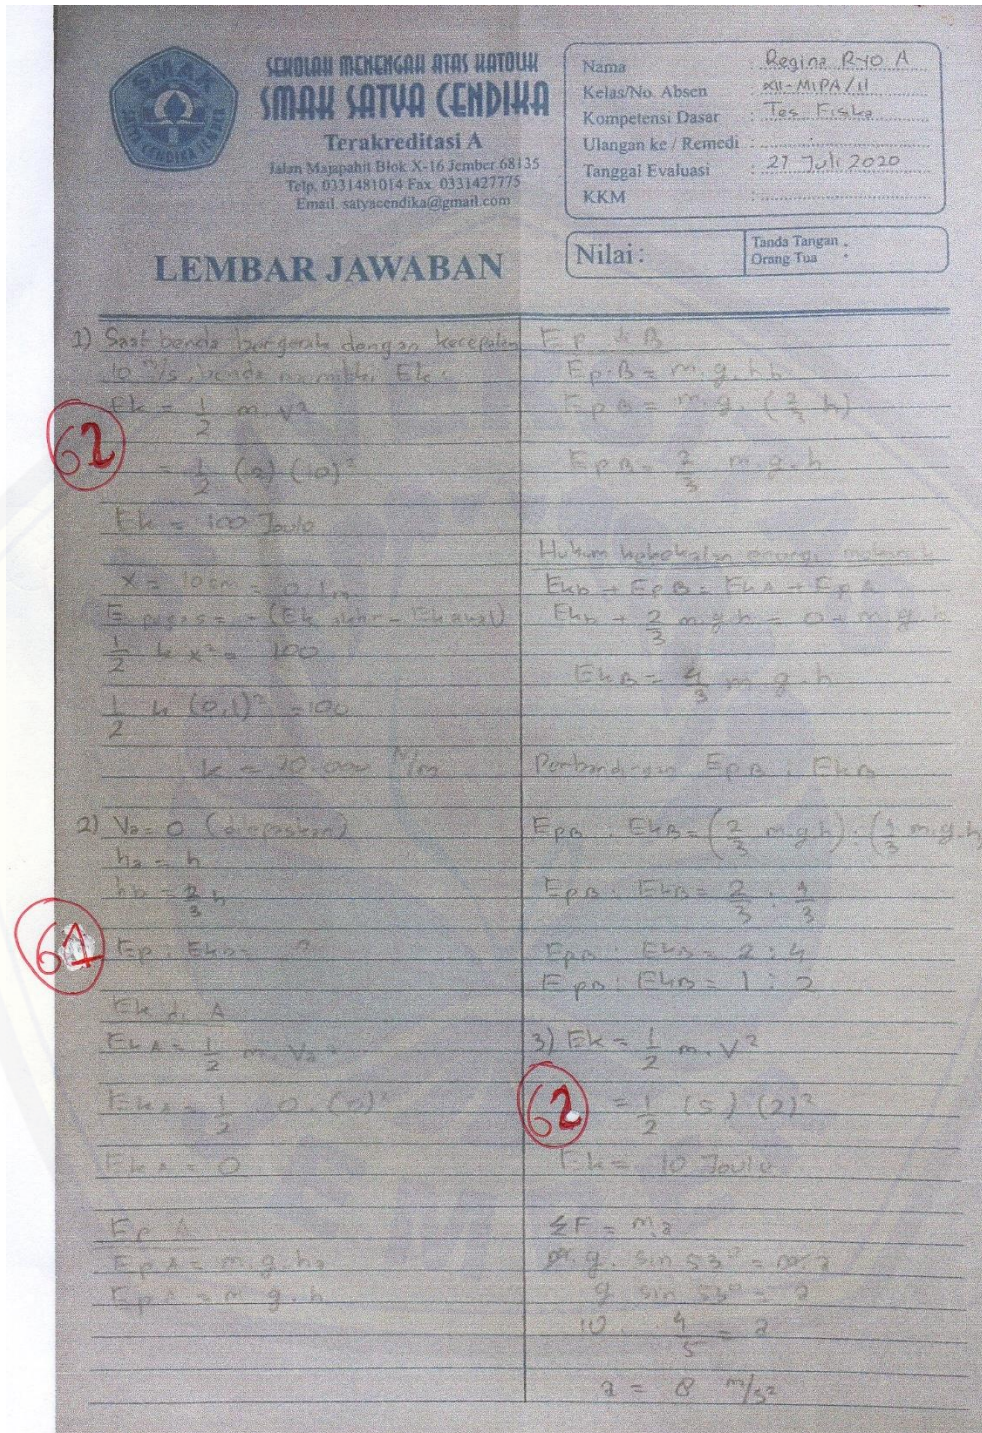 SMAK
SATYA CENDIKA JEMBER
SEKOLAH MENENGAH ATAS KATOLIK
SMAK SATYA CENDIKA
Terakreditasi A
Jalan Majapahit Blok X-16 Jember 68135
Telp. 0331481014 Fax. 0331427775
Email. satyacendika@gmail.com
Nama : Regina Ryo A
Kelas/No. Absen : XII-MIPA/11
Kompetensi Dasar : Tes Fisika
Ulangan ke / Remedi :
Tanggal Evaluasi : 27 Juli 2020
KKM :
LEMBAR JAWABAN
Nilai :
Tanda Tangan :
Orang Tua
1) Saat benda bergerak dengan kecepatan
10 m/s, benda memiliki Ek :
Ek = 1/2 m. v²
62
= 1/2 (2) (10)²
Ek = 100 Joule
x = 10 cm = 0,1 m
E pegas = - (Ek akhir - Ek awal)
1/2 k x² = 100
1/2 k (0,1)² = 100
k = 20.000 N/m
2) Va = 0 (dilepaskan)
ha = h
hb = 2/3 h
61
Ep : Ekb = ?
Ek di A
EkA = 1/2 m. Va²
EkA = 1/2 . 0 (0)²
EkA = 0
Ep A
EpA = m. g. ha
EpA = m g. h
Ep di B
Ep.B = m. g. hb
EpB = m. g. (2/3 h)
EpB = 2/3 m. g. h
Hukum kekekalan energi mekanik
Ekb + EpB = EkA + EpA
Ekb + 2/3 m.g.h = 0 + m.g.h
EkB = 4/3 m. g. h
Perbandingan EpB : EkB
EpB : EkB = (2/3 m.g h) : (4/3 m.g.h)
EpB : EkB = 2/3 : 4/3
EpB : EkB = 2 : 4
EpB : EkB = 1 : 2
3) Ek = 1/2 m. v²
62
= 1/2 (5) (2)²
Ek = 10 Joule
ΣF = m.a
m.g. sin 53° = m.a
g sin 53° = a
10 . 4/5 = a
a = 8 m/s²